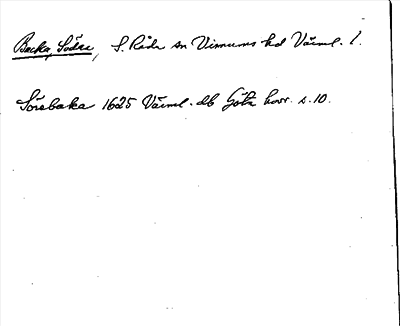 Backa, Södre, S. Råda sn Visnums hd Värml. l.
Sörebaka 1625 Värml. db Göta hovr. s. 10.